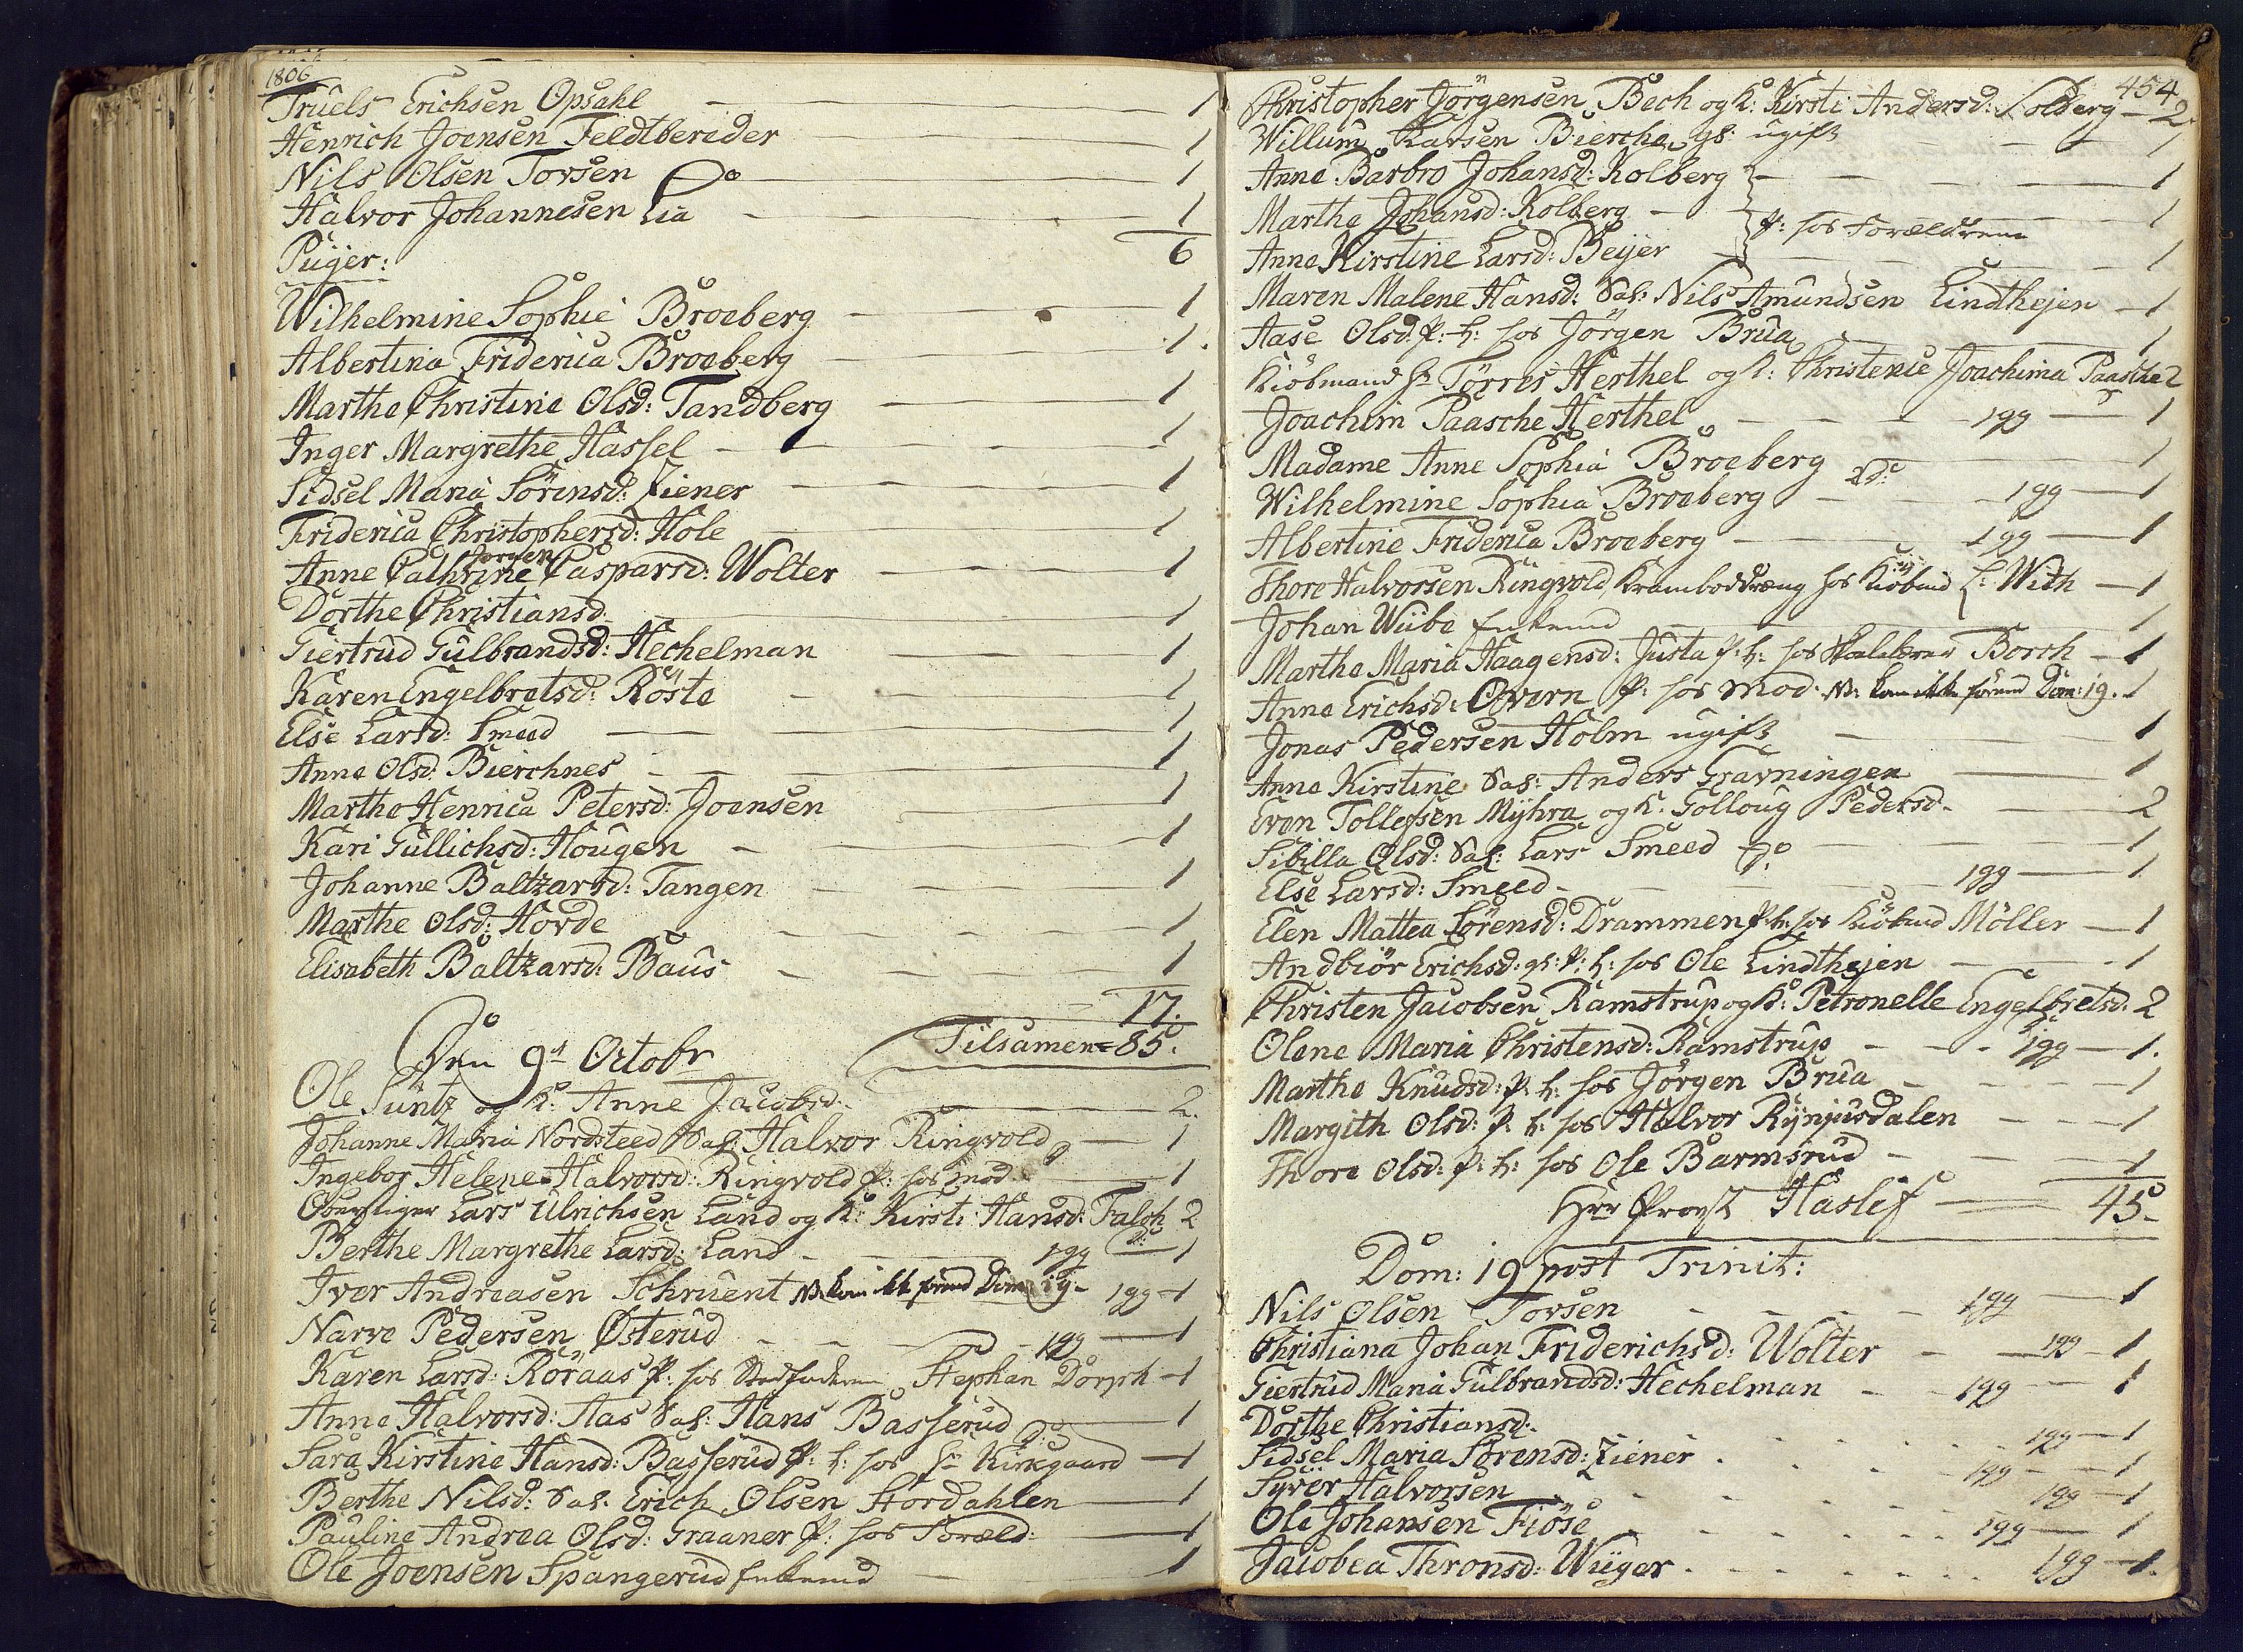 1806
Truels Erichsen Opsahl 1
Henrich Joensen Feldtbereder 1
Nils Olsen Torsen 1
Halvor Johannesen Lia 1
6
Piiger:
Wilhelmine Sophie Broeberg 1
Albertina Friderica Broeberg 1.
Marthe Christine Olsd: Tandberg 1
Inger Margrethe Hassel 1
Sidsel Maria Sörensd: Ziener 1
Friderica Christophersd: Hole 1
Jorgen
Anne Cathrine Caspersd: Wolter 1
Dorthe Christiansd. 1
Giertrud Gulbrandsd: Hechelman 1
Karen Engelbretsd: Röste 1
Else Larsd: Smed 1
Anne Olsd: Bierchnes 1
Marthe Henrica Petersd: Joensen 1
Kari Gullichsd: Hougen 1
Johanne Baltzarsd: Tangen 1
Marthe Olsd: Hovde 1
Elisabeth Baltzarsd: Baus 1
17.
Tilsamen = 85.
Den 9d Octobr
Ole Suntz og K: Anne Jacobsd. 2.
Johanne Maria Nordsteed Sal: Halvor Ringvold 1
Ingebor Helene Halvorsd: Ringvold P: hos Mod. 1
Lars Ulrichsen Land og K: Kirsti Hansd: Falch 2
Berthe Margrethe Larsd: Land 1gg 1
Iver Andreasen Schruent NB. kom ikke förend Dom: 19. 1gg 1
Narve Pedersen Østerud 1gg 1
Karen Larsd: Röraas P. hos Stedfaderen Stephan Dorph 1
Anne Halvorsd: Aas Sal: Hans Basserud 1
Sara Kirstine Hansd: Basserud P: h: hos Sr Kirkgaard 1
Berthe Nilsd: Sal. Erich Olsen Stordahlen 1
Pauline Andrea Olsd: Graaner P: hos Foræld: 1
Ole Joensen Spangerud Enkemd 1
454
Christopher Jörgensen Bech og K: Kirsti Andersd: Solberg 2.
Willum Larsen Bierche gl: ugift 1
Anne Barbro Johansd: Kolberg 1
Marthe Johansd: Kolberg 1
P: hos Forældrene
Anne Kirstine Larsd: Beyer 1
Maren Malene Hansd: Sal: Nils Amundsen Lindthejen 1
Aase Olsd: P: h: hos Jörgen Brua 1
Kiöbmand Sr Törres Herthel og K: Christense Joachima Paasche 2
Joachim Paasche Herthel 1gg 1
Madame Anne Sophia Broeberg 1
Wilhelmine Sophia Broeberg 1gg 1
Albertine Friderica Broeberg 1gg 1
Thore Halvorsen Ringvold Kramboddreng hos Kiöbmd L: With 1
Johan Wiibe Enkemd 1
Marthe Maria Haagensd: Justa P: h: hos Skolelærer Borch 1
Anne Erichsd: Overn P: hos Mod. NB: kom ikke förend Dom: 19. 1
Jonas Pedersen Holm ugift 1
Anne Kirstine Sal: Anders Gravningen 1
Even Tollefsen Myhra og K: Golloug Pedersd. 2
Sibilla Olsd: Sal: Lars Smeed 1
Else Larsd: Smeed 1gg 1
Elen Mattea Sörensd: Drammen P: h: hos Kiöbmd Möller 1
Andbiör Erichsd: gl: P: h: hos Ole Lindthejen 1
Christen Jacobsen Ramstrup og K: Petronelle Engelbretsd: 2
Olene Maria Christensd: Ramstrup 1gg 1.
Marthe Knudsd: P: h: hos Jörgen Brua 1
Margith Olsd: P: h: hos Halvor Rynjusdalen 1
Thore Olsd: P: h: hos Ole Barmsrud 1
Hrr Provst Haslef 45.
Dom: 19 post Trinit:
Nils Olsen Torsen 1gg 1
Christiana Johan Friderichsd: Wolter 1gg 1
Giertrud Maria Gulbrandsd: Hechelman 1gg 1
Dorthe Christiansd. 1gg 1
Sidsel Maria Sörensd: Ziener 1gg 1
Syver Halvorsen 1gg 1
Ole Johansen Fiöse 1gg 1
Jacobea Thronsd: Wiiger 1gg 1.